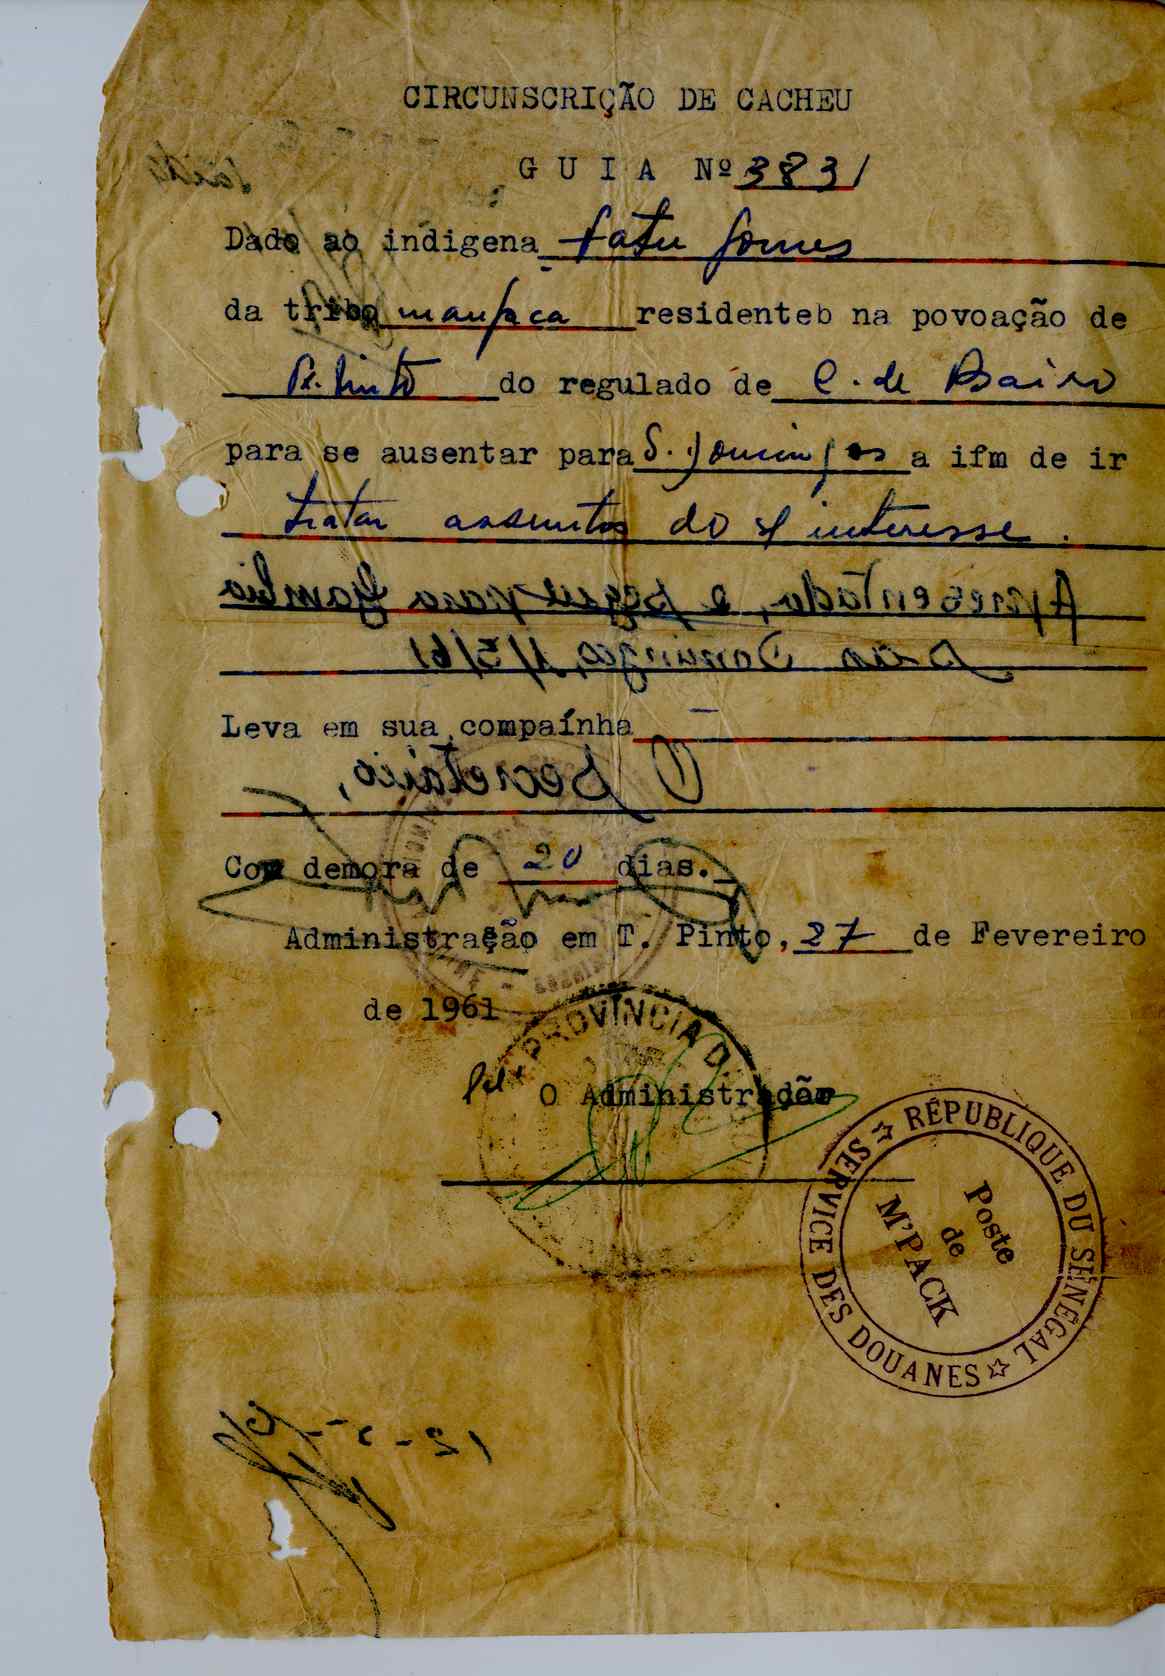 CIRCUNSCRIÇÃO DE CACHEU
GUIA Nº 3831
Dado ao indigena Fatu Gomes
da tribo manjaca residenteb na povoação de
do regulado de C. de Baixo
para se ausentar para S. Domingos a ifm de ir
tratar assuntos do s/ interesse.
Apresentada, e segue para Gambia
São Domingos, 1/3/61
Leva em sua compaínha —
O Secretário,
Com demora de 20 dias.
Administração em T. Pinto, 27 de Fevereiro
de 1961
PROVÍNCIA D
Pel' O Administrador
RÉPUBLIQUE DU SÉNÉGAL
SERVICE DES DOUANES
Poste
de
M'PACK